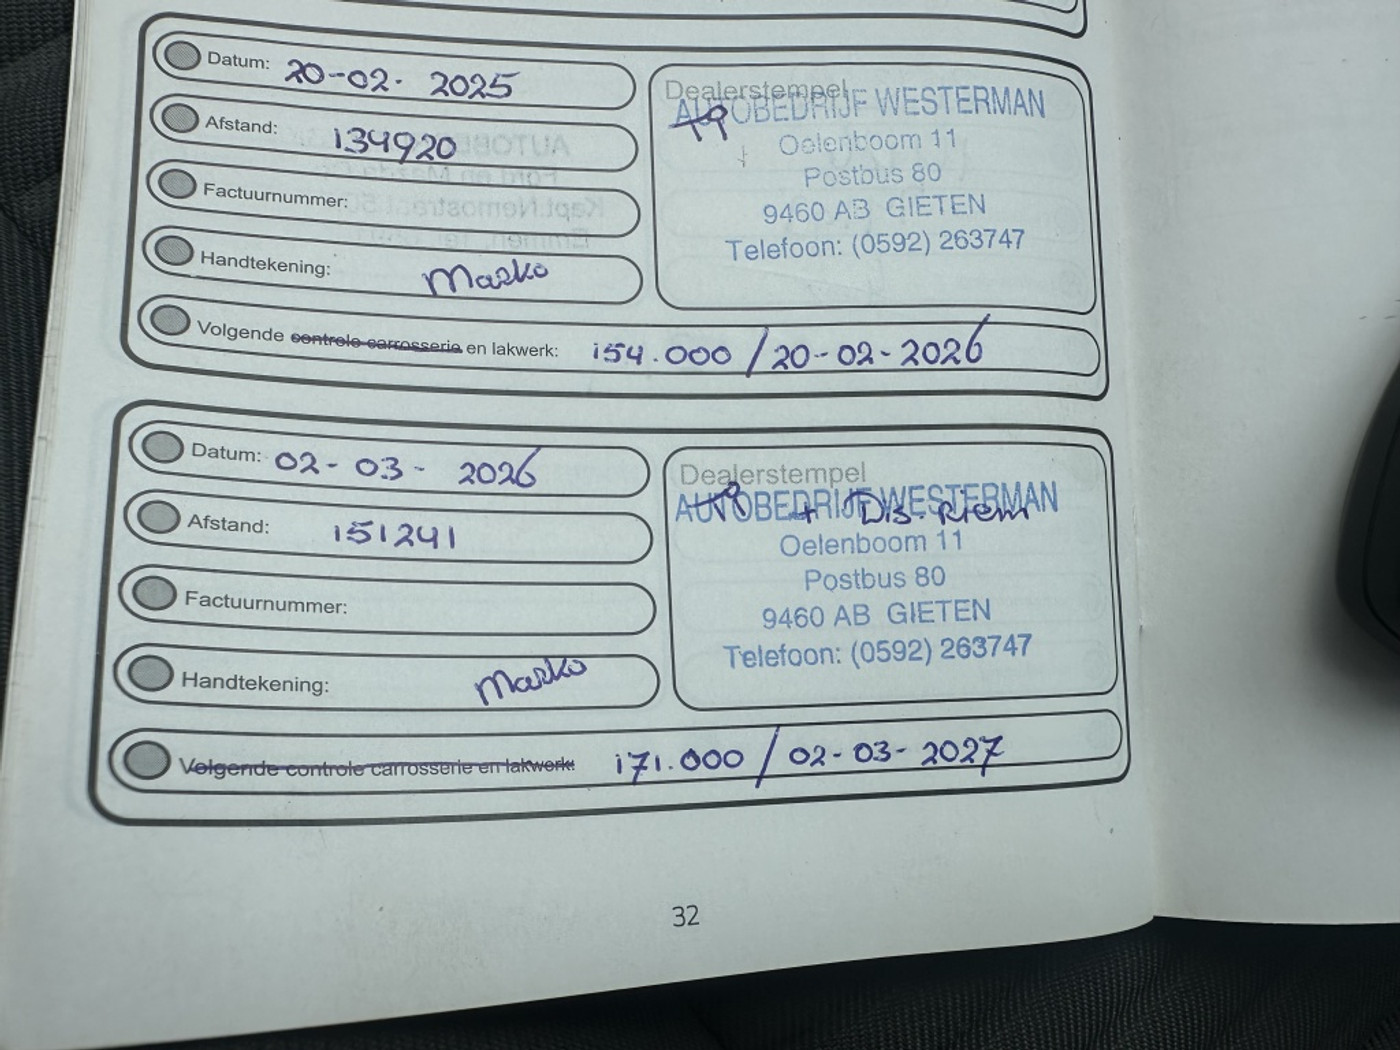 Datum: 20-02-2025
Afstand: 134920
Factuurnummer:
Handtekening: Marko
Volgende controle carrosserie en lakwerk: 154.000 / 20-02-2026
Dealerstempel
AUTOBEDRIJF WESTERMAN
Oelenboom 11
Postbus 80
9460 AB GIETEN
Telefoon: (0592) 263747
Datum: 02-03-2026
Afstand: 151241
Factuurnummer:
Handtekening: Marko
Volgende controle carrosserie en lakwerk: 171.000 / 02-03-2027
Dealerstempel
AUTOBEDRIJF WESTERMAN
+ Dis. Riem
Oelenboom 11
Postbus 80
9460 AB GIETEN
Telefoon: (0592) 263747
32